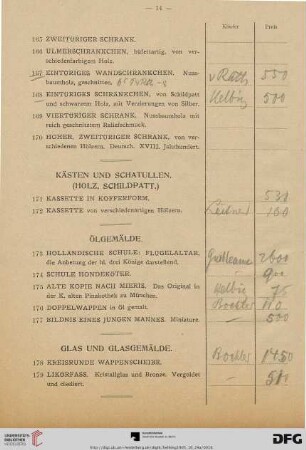 — 14 —
Käufer Preis
165 ZWEITÜRIGER SCHRANK.
166 ULMERSCHRÄNKCHEN, büfettartig, von ver-
schiedenfarbigem Holz.
167 EINTÜRIGES WANDSCHRÄNKCHEN. Nuss-
baumholz, geschnitten. v Rath 550
168 EINTÜRIGES SCHRÄNKCHEN, von Schildpatt
und schwarzem Holz, mit Verzierungen von Silber. Helbig 500
169 VIERTÜRIGER SCHRANK. Nussbaumholz mit
reich geschnitztem Reliefschmuck.
170 HOHER, ZWEITÜRIGER SCHRANK, von ver-
schiedenen Hölzern. Deutsch. XVIII. Jahrhundert.
KÄSTEN UND SCHATULLEN.
(HOLZ, SCHILDPATT.)
171 KASSETTE IN KOFFENFORM. 530
172 KASSETTE von verschiedenartigen Hölzern. 100
ÖLGEMÄLDE.
173 HOLLÄNDISCHE SCHULE: FLÜGELALTAR,
die Anbetung der hl. drei Könige darstellend. Guilleaume 2600
174 SCHULE HONDEKOTER. — 900
175 ALTE KOPIE NACH MIERIS. Das Original in
der K. alten Pinakothek zu München. 75
176 DOPPELWAPPEN in Öl gemalt. 110
177 BILDNIS EINES JUNGEN MANNES. Miniature. — 500
GLAS UND GLASGEMÄLDE.
178 KREISRUNDE WAPPENSCHEIBE. 1450
179 LIKÖRFASS. Kristallglas und Bronze. Vergoldet
und ziseliert. —
UNIVERSITÄTS-
BIBLIOTHEK
HEIDELBERG
DFG